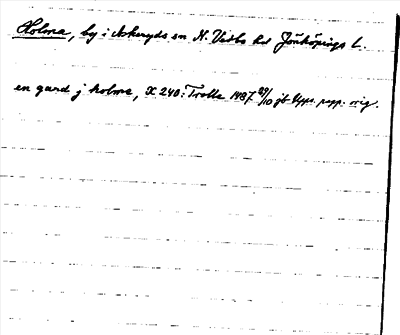 Holma, by i Askeryds sn N. Vedbo hd Jönköpings l.
en gard j holma, X 240: Trolle 1487 29/10 jb Upps. papp. orig.